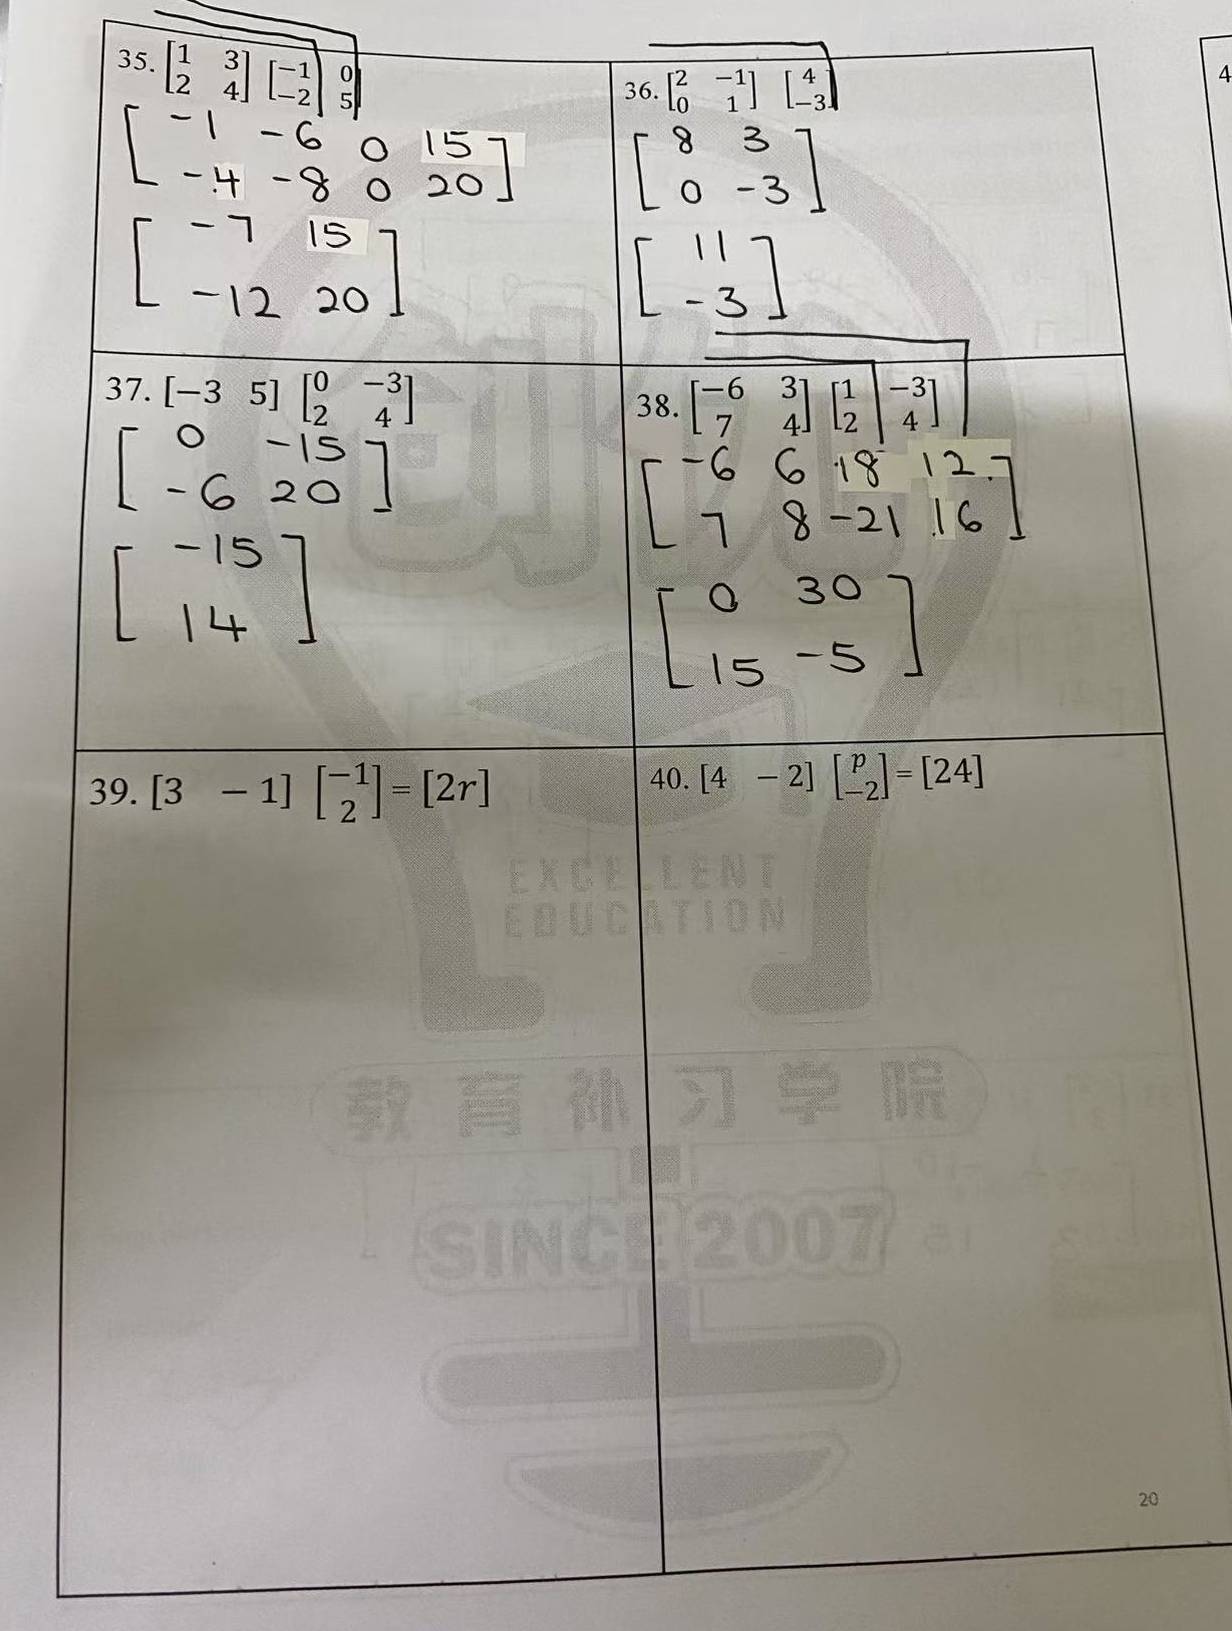 35. [1 3 [-1 0
2 4] -2] 5]
[-1 -6 0 15
-4 -8 0 20]
[-7 15
-12 20]
36. [2 -1 [4
0 1] -3]
[8 3
0 -3]
[11
-3]
37. [-3 5] [0 -3
2 4]
[0 -15
-6 20]
[-15
14]
38. [-6 3 [1 -3
7 4] 2 4]
[-6 6 18 12
7 8 -21 16]
[0 30
15 -5]
39. [3 - 1] [-1
2] = [2r]
40. [4 - 2] [p
-2] = [24]
EXCELLENT
EDUCATION
教育补习学院
SINCE 2007
20
4